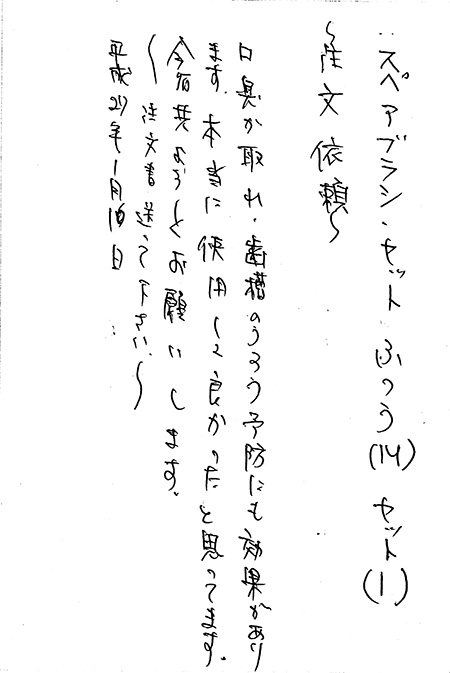 ：スペアブラシ・セット ふつう(14) セット(1)
～注文依頼～
口臭が取れ・歯槽のうろう予防にも効果があり
ます。本当に使用して良かったと思ってます。
今后共よろしくお願いします。
～注文書送って下さい。～
平成27年1月16日：